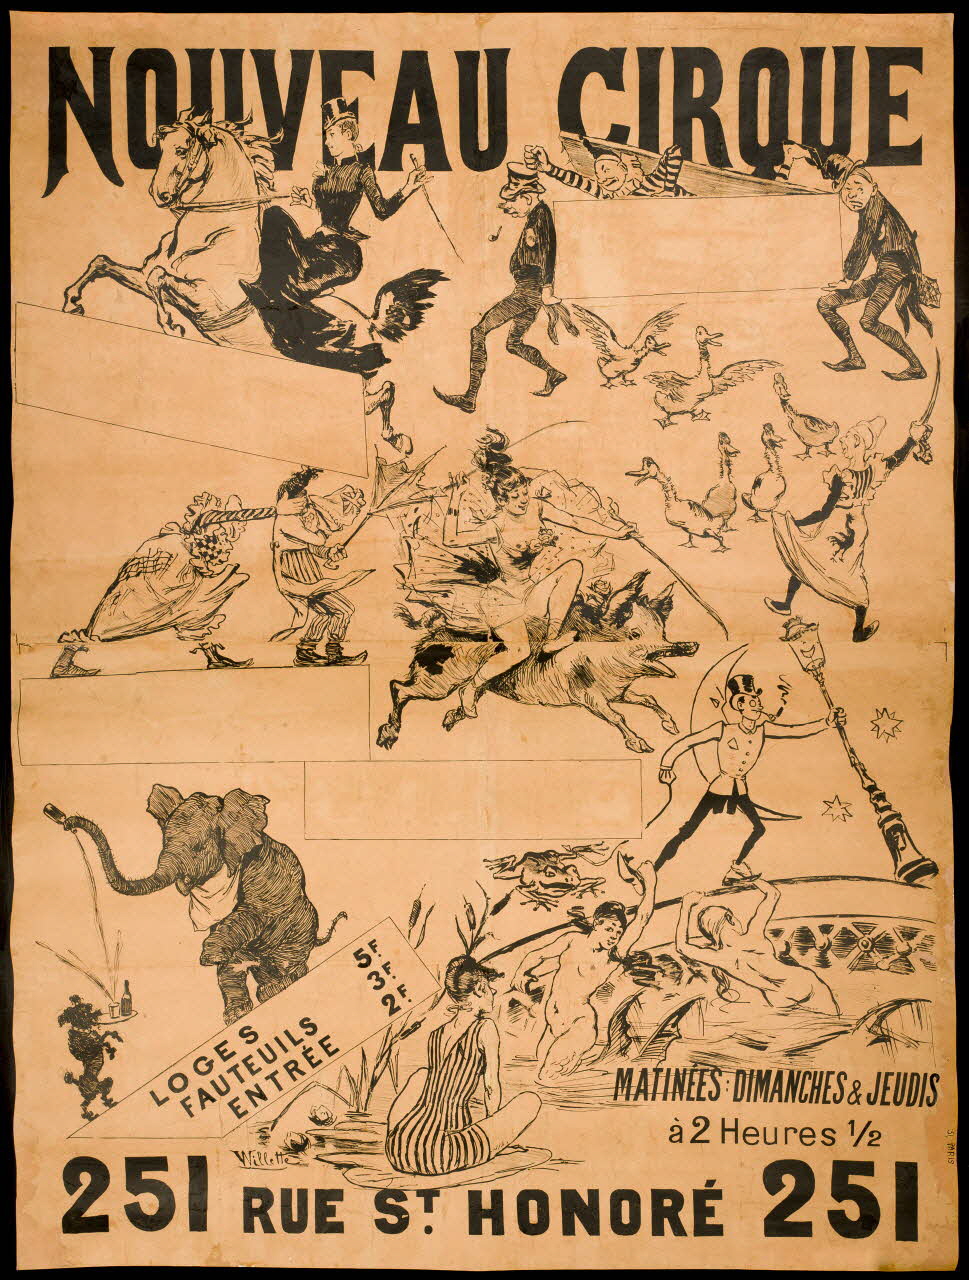 NOUVEAU CIRQUE
LOGES 5F.
FAUTEUILS 3F.
ENTRÉE 2F.
MATINÉES: DIMANCHES & JEUDIS
à 2 Heures 1/2
Willette
251 RUE ST. HONORÉ 251